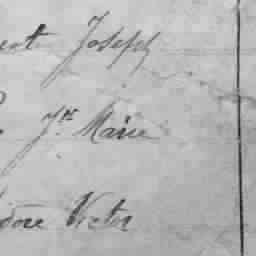 Joseph
Jn Marie
dore Victor